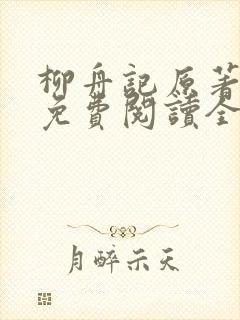 柳舟記原著
免費閱讀全
月醉示天